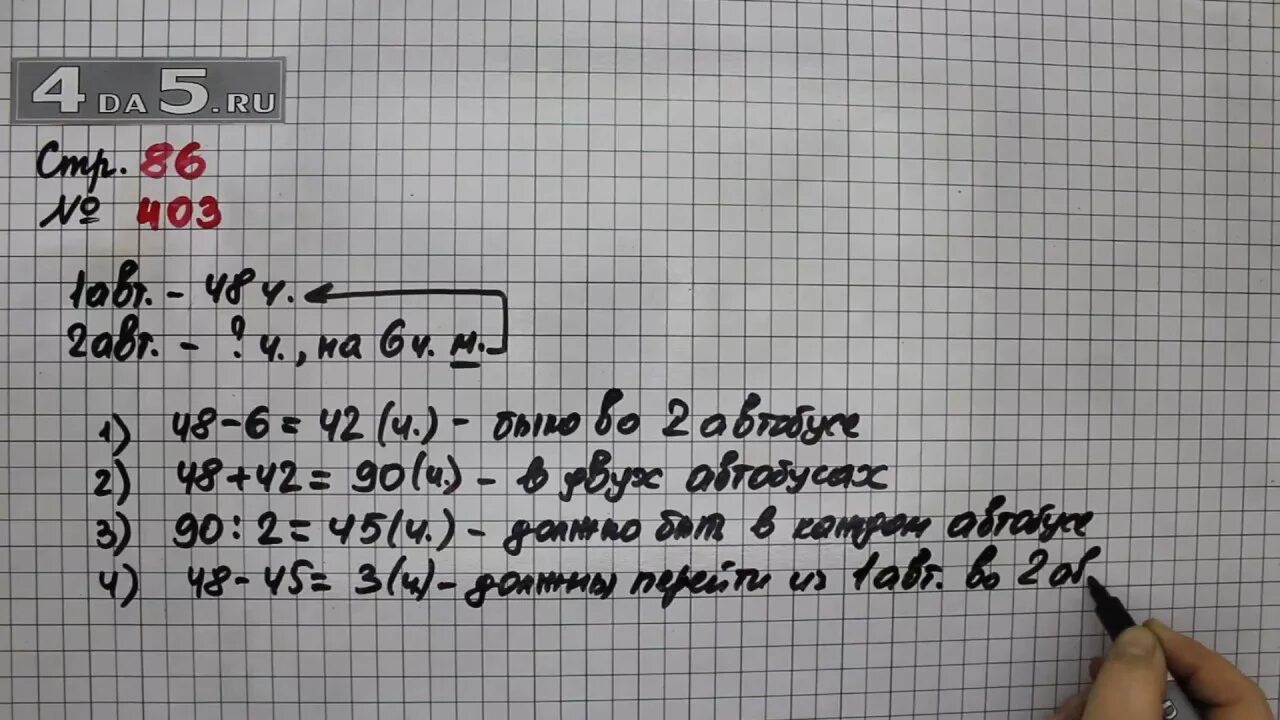 4DA5.RU
Стр. 86
№ 403
1авт. - 48 ч.
2авт. - ? ч., на 6 ч. м.
1) 48-6=42(ч.) - было во 2 автобусе
2) 48+42=90(ч.) - в двух автобусах
3) 90:2=45(ч.) - должно быть в каждом автобусе
4) 48-45=3(ч) - должны перейти из 1авт. во 2 ав